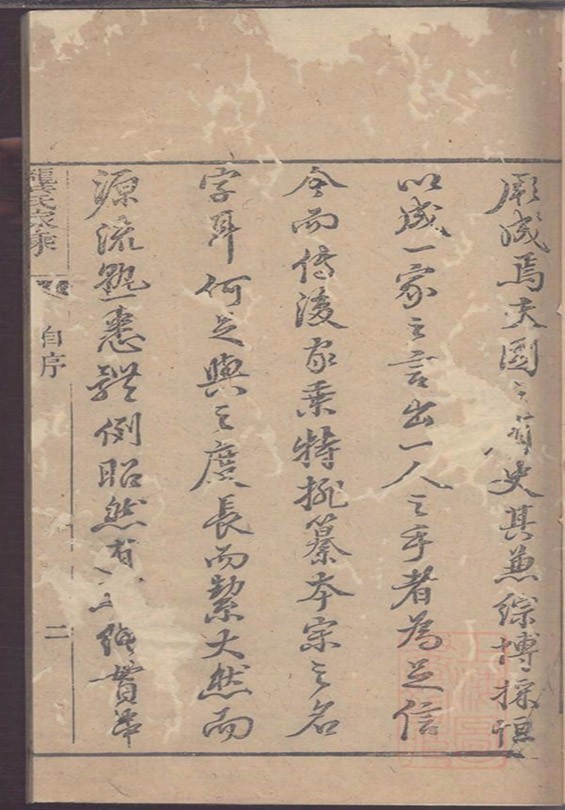 厥成焉夫國之有史其兼綜博採恒
以成一家之言出一人之手者為足信
今而傳後家乘特排纂本宗之名
字耳何足與之度長而絜大然而
源流悉體例昭然有貫
龔氏家乘
自序
二